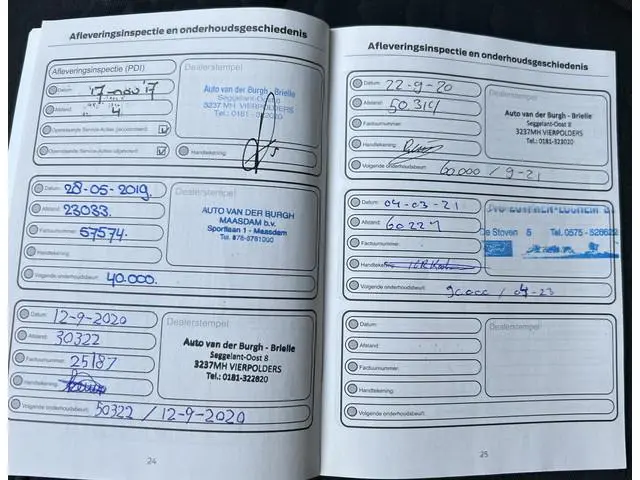 Afleveringsinspectie en onderhoudsgeschiedenis
Afleveringsinspectie (PDI)
Datum: 17-nov '17
Afstand: 4
Openstaande Service-Acties
Openstaande Service-Acties uitgevoerd
Dealerstempel
Auto van der Burgh - Brielle
Seggelant-Oost 8
3237 MH VIERPOLDERS
Tel.: 0181 -
Handtekening:
Datum: 28-05-2019.
Afstand: 23033.
Factuurnummer: 57574.
Handtekening:
Volgende onderhoudsbeurt: 40.000.
AUTO VAN DER BURGH
MAASDAM b.v.
Sportlaan 1 - Maasdam
Tel. 078-6761000
Datum: 12-9-2020
Afstand: 30322
Factuurnummer: 25187
Handtekening:
Volgende onderhoudsbeurt: 50322 / 12-9-2020
Dealerstempel
Auto van der Burgh - Brielle
Seggelant-Oost 8
3237MH VIERPOLDERS
Tel.: 0181-322820
24
Afleveringsinspectie en onderhoudsgeschiedenis
Datum: 22-9-20
Afstand: 50314
Factuurnummer:
Handtekening:
Volgende onderhoudsbeurt: 60.000 / 9-21
Dealerstempel
Auto van der Burgh - Brielle
Seggelant-Oost 8
3237MH VIERPOLDERS
Tel.: 0181-322020
Datum: 04-03-21
Afstand: 60227
Factuurnummer:
Handtekening:
Volgende onderhoudsbeurt: 90000 / 04-23
De Stoven 8 Tel. 0575 - 526622
Datum:
Afstand:
Factuurnummer:
Handtekening:
Volgende onderhoudsbeurt:
Dealerstempel
25